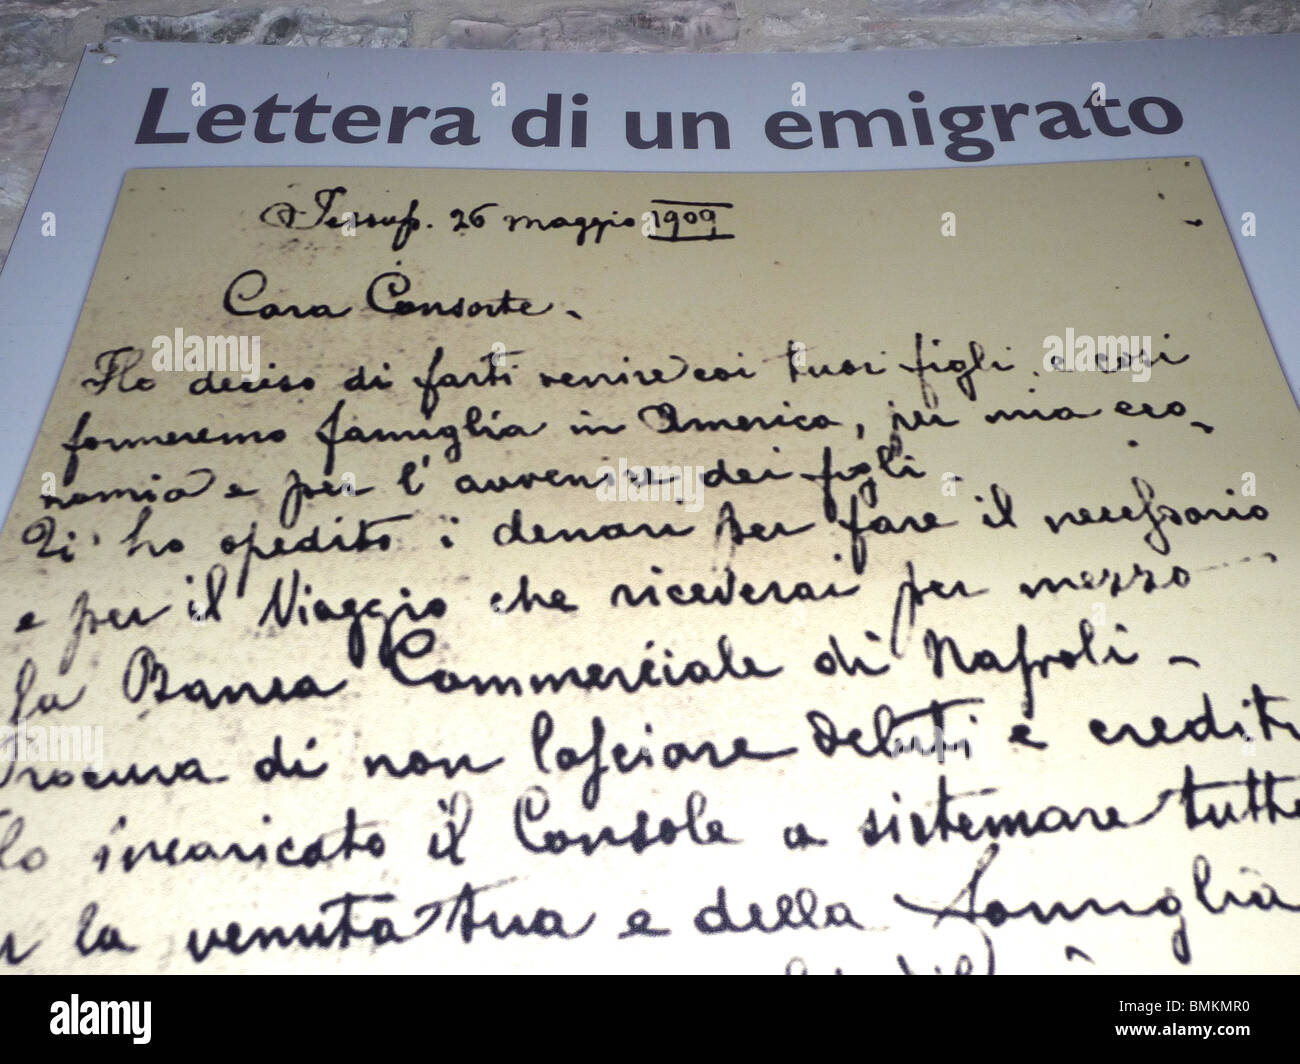 Lettera di un emigrato
26 maggio 1909
Cara Consorte.
Ho deciso di farti venire coi tuoi figli e cosi
formeremo famiglia in America, per mia eco-
nomia e per l'avvenire dei figli.
Ti ho spedito i denari per fare il necessario
e per il Viaggio che riceverai per mezzo
la Banca Commerciale di Napoli -
Procura di non lasciare debiti e crediti
Ho incaricato il Console a sistemare tutte
la venuta tua e della famiglia
alamy
Image ID: BMKMR0
www.alamy.com